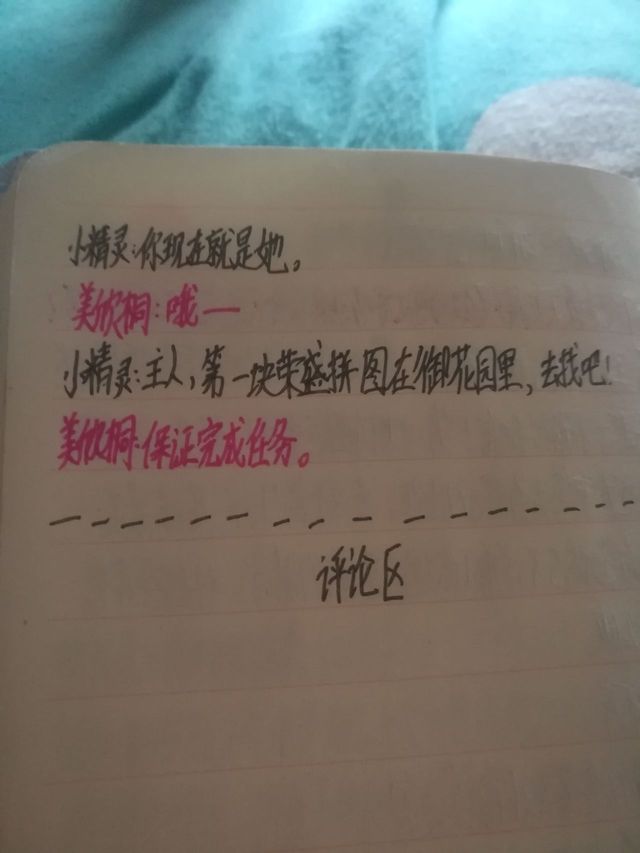 小精灵:你现在就是她。
美欣桐:哦一
小精灵:主人,第一块荣盛拼图在御花园里,去找吧!
美欣桐:保证完成任务。
评论区